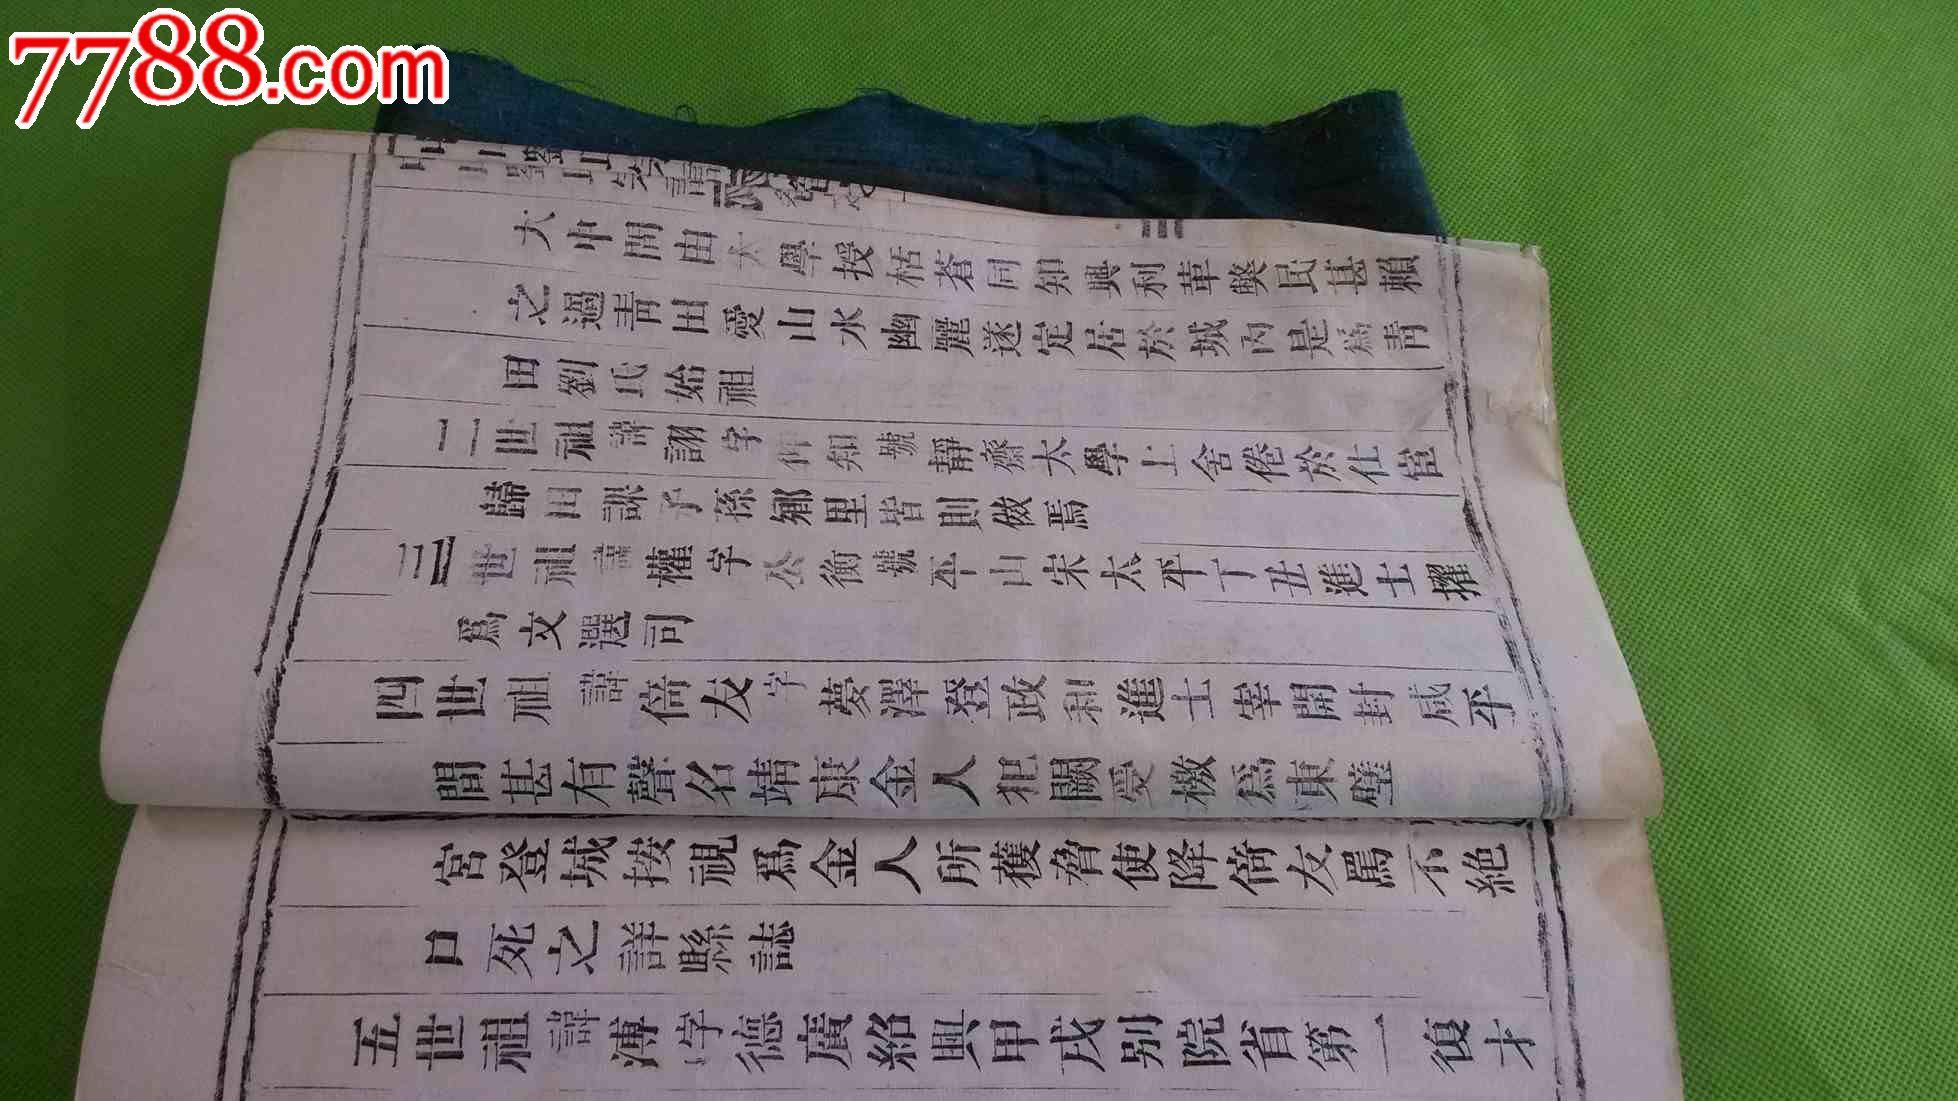 7788.com
大中間由太學授栝蒼同知興利革獘民甚賴
之過靑田愛山水幽麗遂定居於城內是爲靑
田劉氏始祖
二世祖諱詡字仰知號靜齋太學上舍倦於仕宦
歸田課子孫鄕里皆則傚焉
三世祖諱權字公衡號平山宋太平丁丑進士擢
爲文選司
四世祖諱倚友字夢澤登政和進士宰開封咸平
間甚有聲名靖康金人犯闕受檄爲東壁
宮登城按視爲金人所獲脅使降倚友罵不絶
口死之詳縣誌
五世祖諱溥字德廣紹興甲戌別院省第一復才